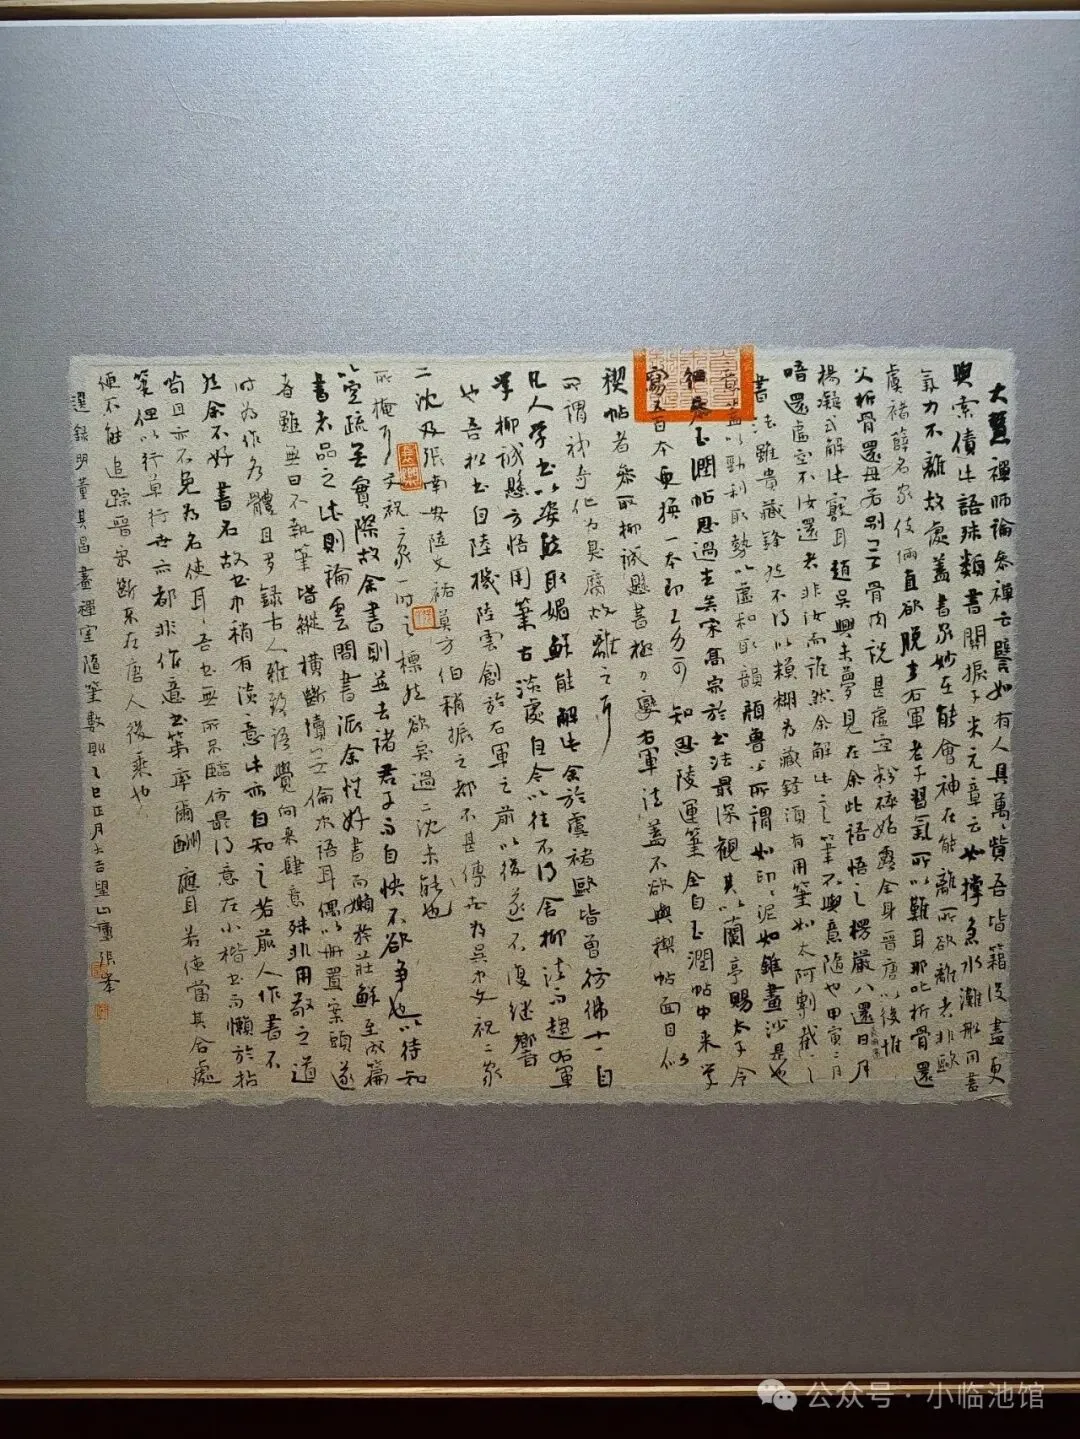 大慧禪師論參禪云譬如有人具萬萬貲吾皆籍沒盡更
與索債此語殊類書關捩子米元章云如撐急水灘船用盡
氣力不離故處蓋書家妙在能會神在能離所欲離者非歐
虞褚薛名家伎倆直欲脫去右軍老子習氣所以難耳那吒析骨還
父析骨還母若別無骨肉說甚虛空粉碎始露全身晉唐以後惟
楊凝式解此竅耳趙吳興未夢見在余此語悟之楞嚴八還曰月
唔還虛空不汝還者非汝而誰然余解此之筆不與意隨也甲寅二月
書法雖貴藏鋒然不得以模糊為藏鋒須有用筆如太阿剸截之
意蓋以勁利取勢以虛和取韻顏魯公所謂如印印泥如錐畫沙是也
細參玉潤帖思過半矣宋高宗於書法最深觀其以蘭亭賜太子令
寫五百本更換一本即工力可知思陵運筆全自玉潤帖中來學
禊帖者參取柳誠懸書極力變右軍法蓋不欲與禊帖面目似
所謂神奇化為臭腐故離之耳
凡人學書以姿態取媚鮮能解此余於虞褚歐皆曾彷彿十一自
學柳誠懸方悟用筆古淡處自今以往不得舍柳法而趨右軍
也吾松書自陸機陸雲創於右軍之前以後遂不復繼響
二沈及張南安陸文裕莫方伯稍振之都不甚傳世為吳中文祝二家
所掩耳文祝二家一時之標然欲突過二沈未能也
以空疏無實際故余書則並去諸君子而自快不欲爭也以待知
書者品之此則論雲間書派余性好書而懶於莊鮮至成篇
者雖無日不執筆皆縱橫斷續無倫次語耳偶以冊置案頭遂
時為作各體且多錄古人雅致語覺向來肆意殊非用敬之道
然余不好書名故書中稍有淡意此亦自知之若前人作書不
苟且亦不免為名使耳吾書無所不臨仿最得意在小楷書而懶於拈
筆但以行草行世亦都非作意書第率爾酬應耳若使當其合處
便不能追踪晉宋斷不在唐人後乘也
選錄明董其昌畫禪室隨筆數則乙巳正月大吉望山齋張峯
公众号·小临池馆